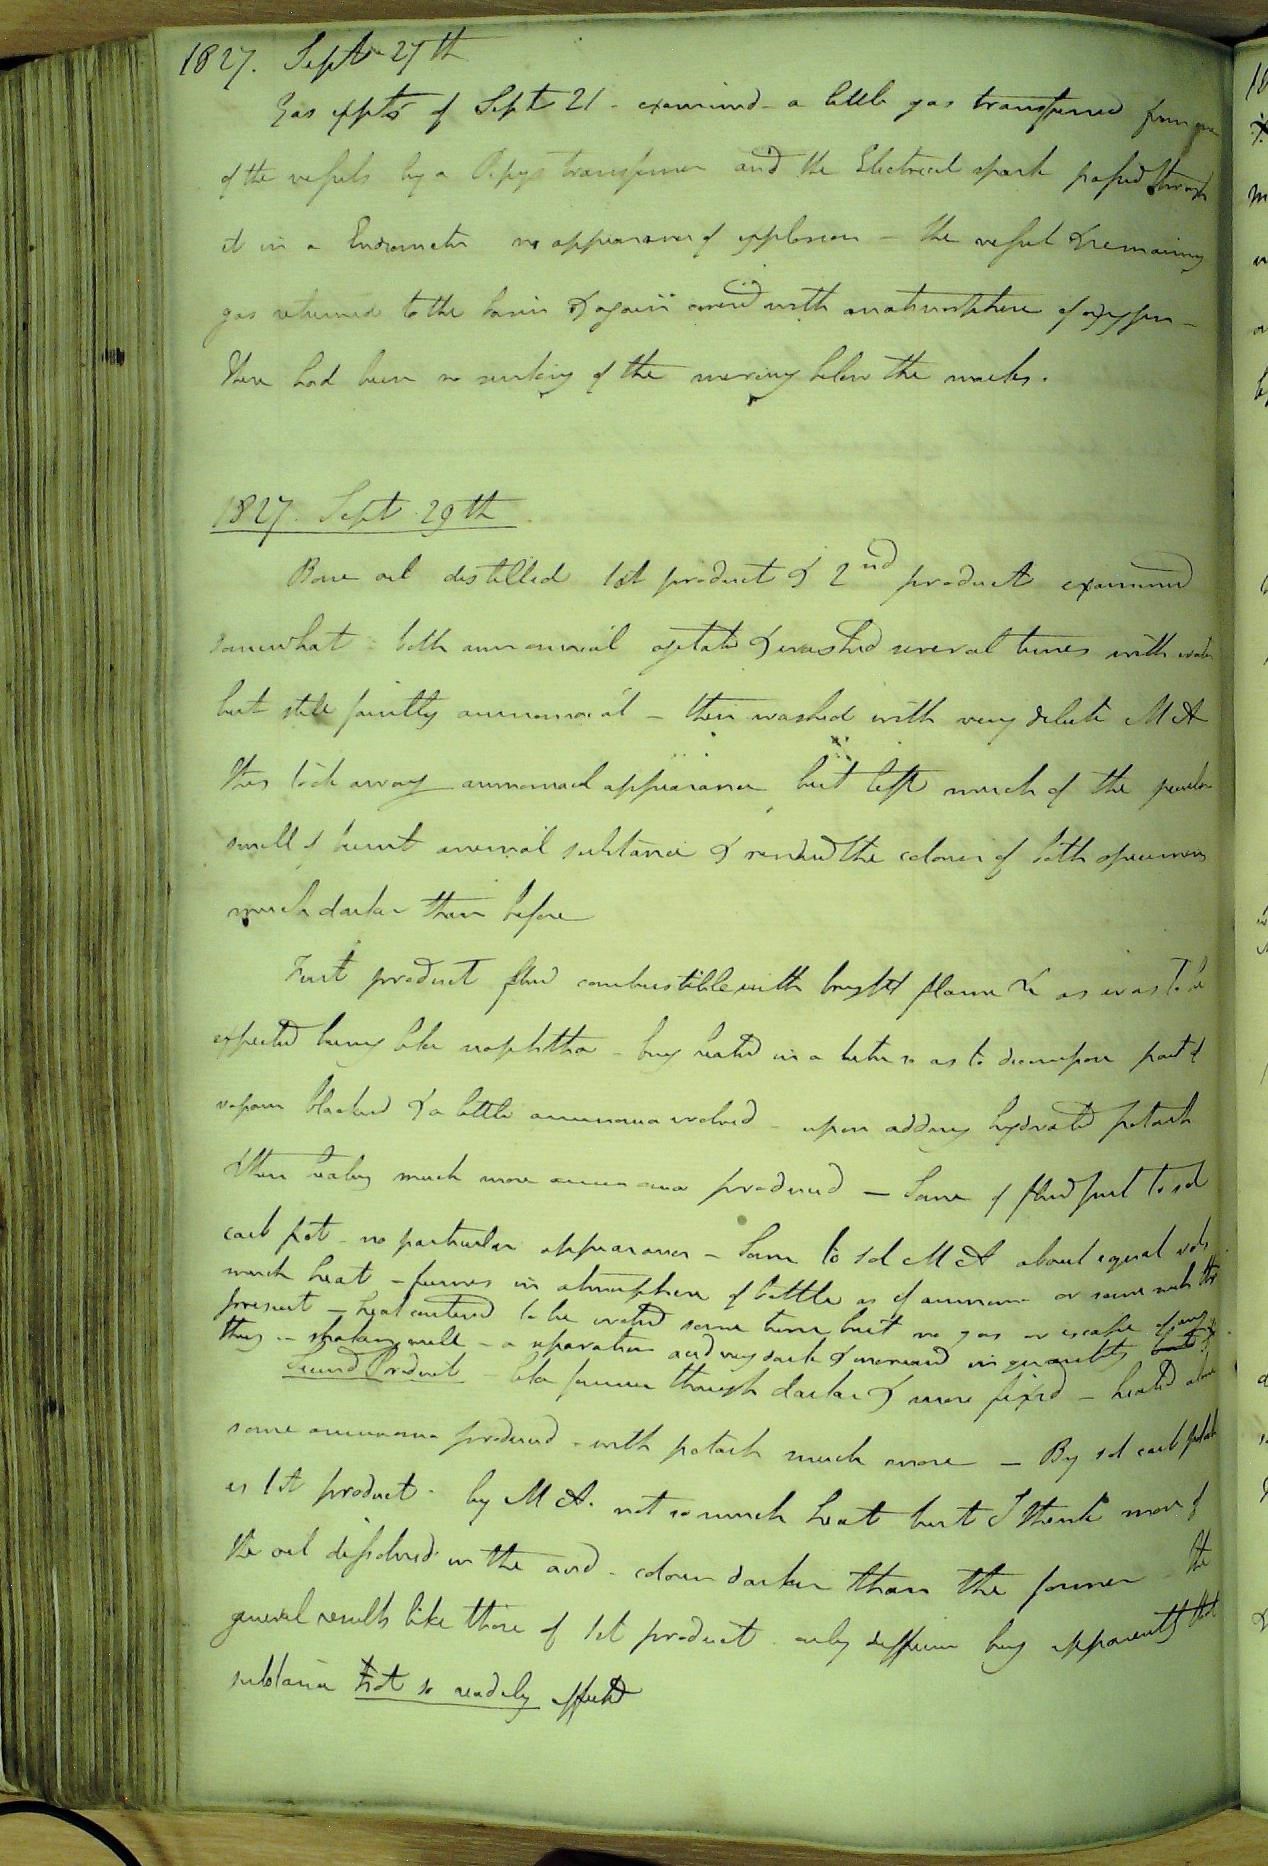 1827. Sept 27th
Gas expts of Sept 21 - examined - a little gas transferred from one
of the vessels by a Pepys transferrer and the Electrical spark passed through
it in a Eudiometer no appearance of explosion - the vessel & remaining
gas returned to the basin & again covered with an atmosphere of oxygen -
there had been no sinking of the mercury below the marks.
1827. Sept 29th
Bone oil distilled 1st product & 2nd product examined
somewhat - both ammoniacal agitated & washed several times with water
but still faintly ammoniacal - then washed with very dilute M A
this took away ammoniacal appearance but left much of the peculiar
smell of burnt animal substance & rendered the colour of both specimens
much darker than before
First product fluid combustible with bright flame &c as was to be
expected being like naphtha - being heated in a tube so as to decompose part of
vapour blacked & a little ammonia evolved - upon adding hydrated potash
& then heating much more ammonia produced - Some of fluid put to sol
carb pot - no particular appearance - Some to sol M A about equal vols
much heat - fumes in atmosphere of bottle as if ammonia or some such thing
present - heat continued to be evolved some time but no gas or escape of any
thing - shaking well - a separation acid very dark & increased in quantity
Second Product - like former though darker & more fixed - heated alone
some ammonia produced - with potash much more - By sol carb potash
as 1st product - by M A. not so much heat but I think more of
the oil dissolved in the acid - colour darker than the former - the
general results like those of 1st product only differing by apparently that
substance not so readily effected